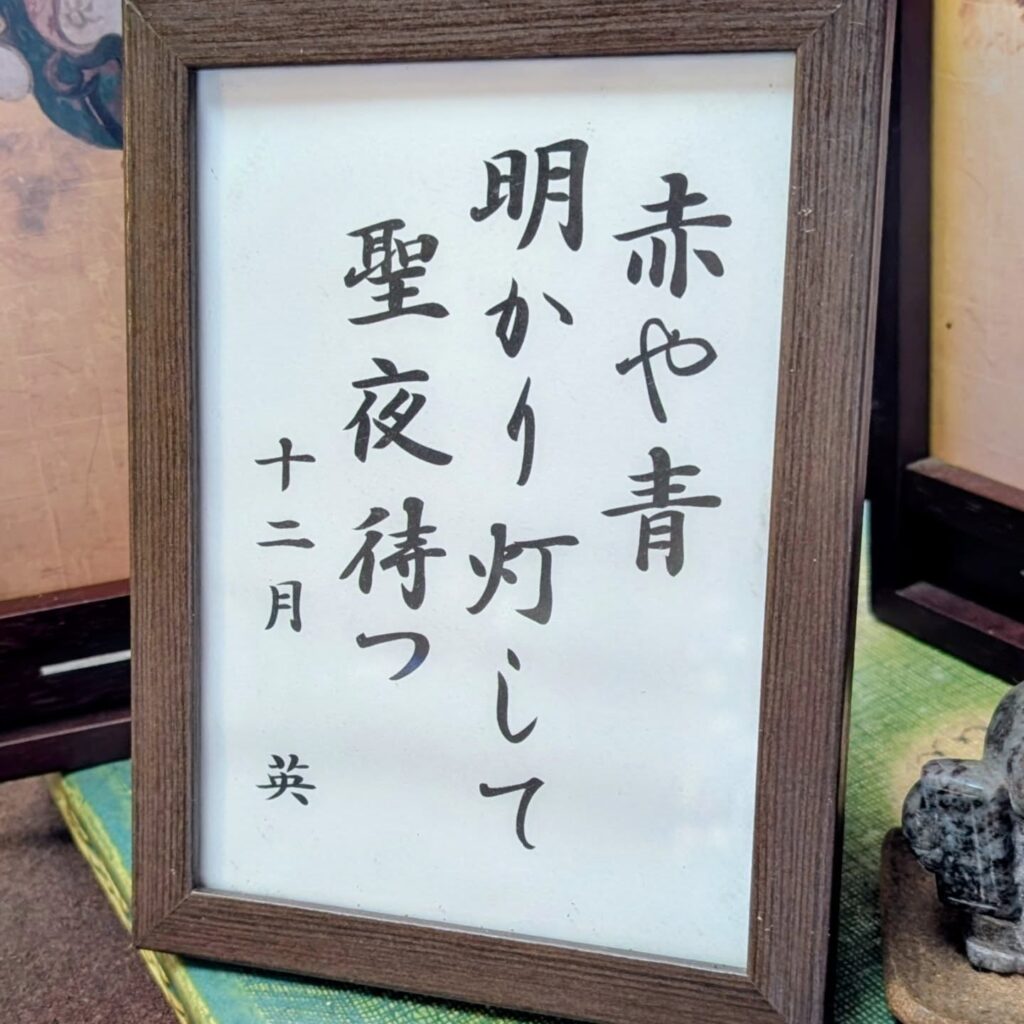 赤や青
明かり灯して
聖夜待つ
十二月 英